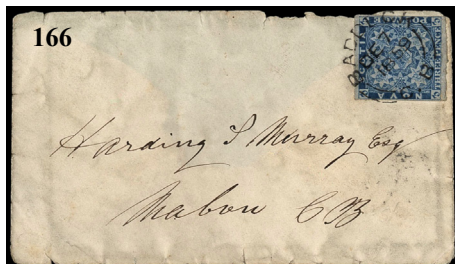 166
NOVA
Harding S Murray Esq
Mabou CB